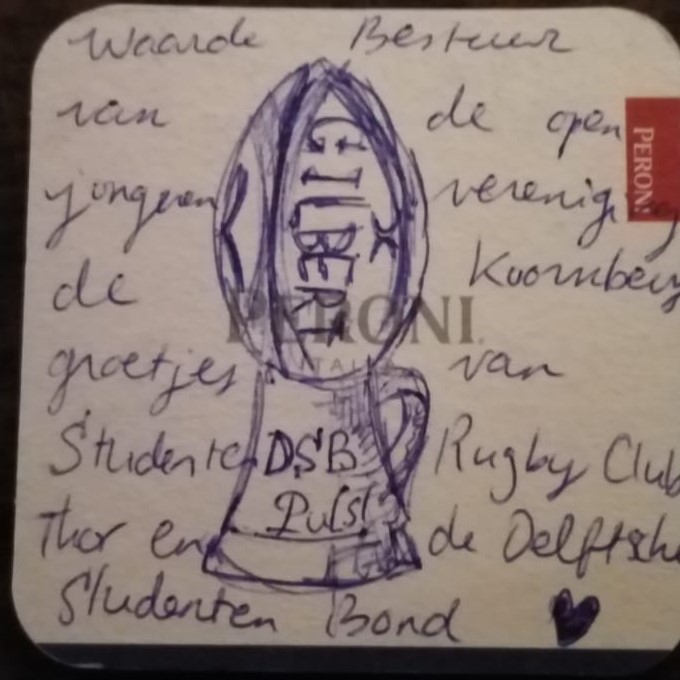 Waarde Bestuur
van de open
jongeren vereniging
de Koornbeurs
groetjes van
Studenten Rugby Club
Thor en de Delftsche
Studenten Bond
GILBERT
DSB
Puls!
PERONI
ITALIA
PERONI